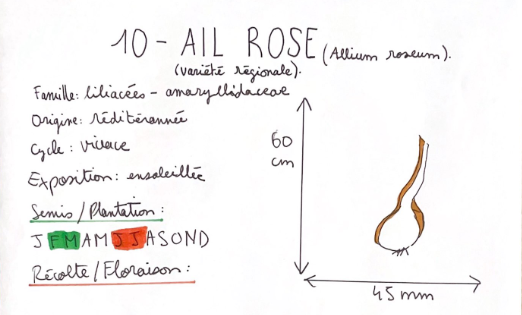 10 - AIL ROSE (Allium roseum).
(variété régionale).
Famille: liliacées - amaryllidaceae
Origine: Méditérannée
Cycle : vivace
Exposition: ensoleillée
Semis/Plantation :
J F M A M J J A S O N D
Récolte/Floraison :
60
cm
45 mm